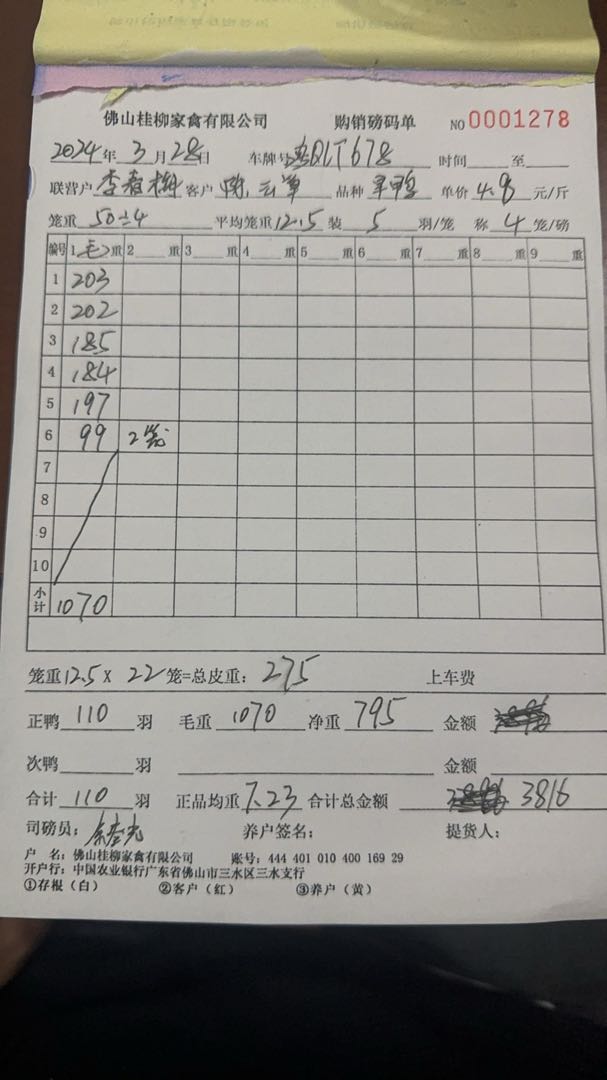 佛山桂柳家禽有限公司 购销磅码单 NO 0001278
2024年3月28日 车牌号粤QLT678 时间 至
联营户 李春梅 客户 陈云单 品种 旱鸭 单价 4.8 元/斤
笼重 50÷4 平均笼重 12.5 装 5 羽/笼 称 4 笼/磅
编号 1 毛 重 2 重 3 重 4 重 5 重 6 重 7 重 8 重 9 重
1 203
2 202
3 185
4 184
5 197
6 99 2笼
7
8
9
10
小计 1070
笼重 12.5 X 22 笼=总皮重: 275 上车费
正鸭 110 羽 毛重 1070 净重 795 金额
次鸭 羽 金额
合计 110 羽 正品均重 7.23 合计总金额 3816
司磅员: 养户签名: 提货人:
户 名: 佛山桂柳家禽有限公司 账号: 444 401 010 400 169 29
开户行: 中国农业银行广东省佛山市三水区三水支行
①存根(白) ②客户(红) ③养户(黄)